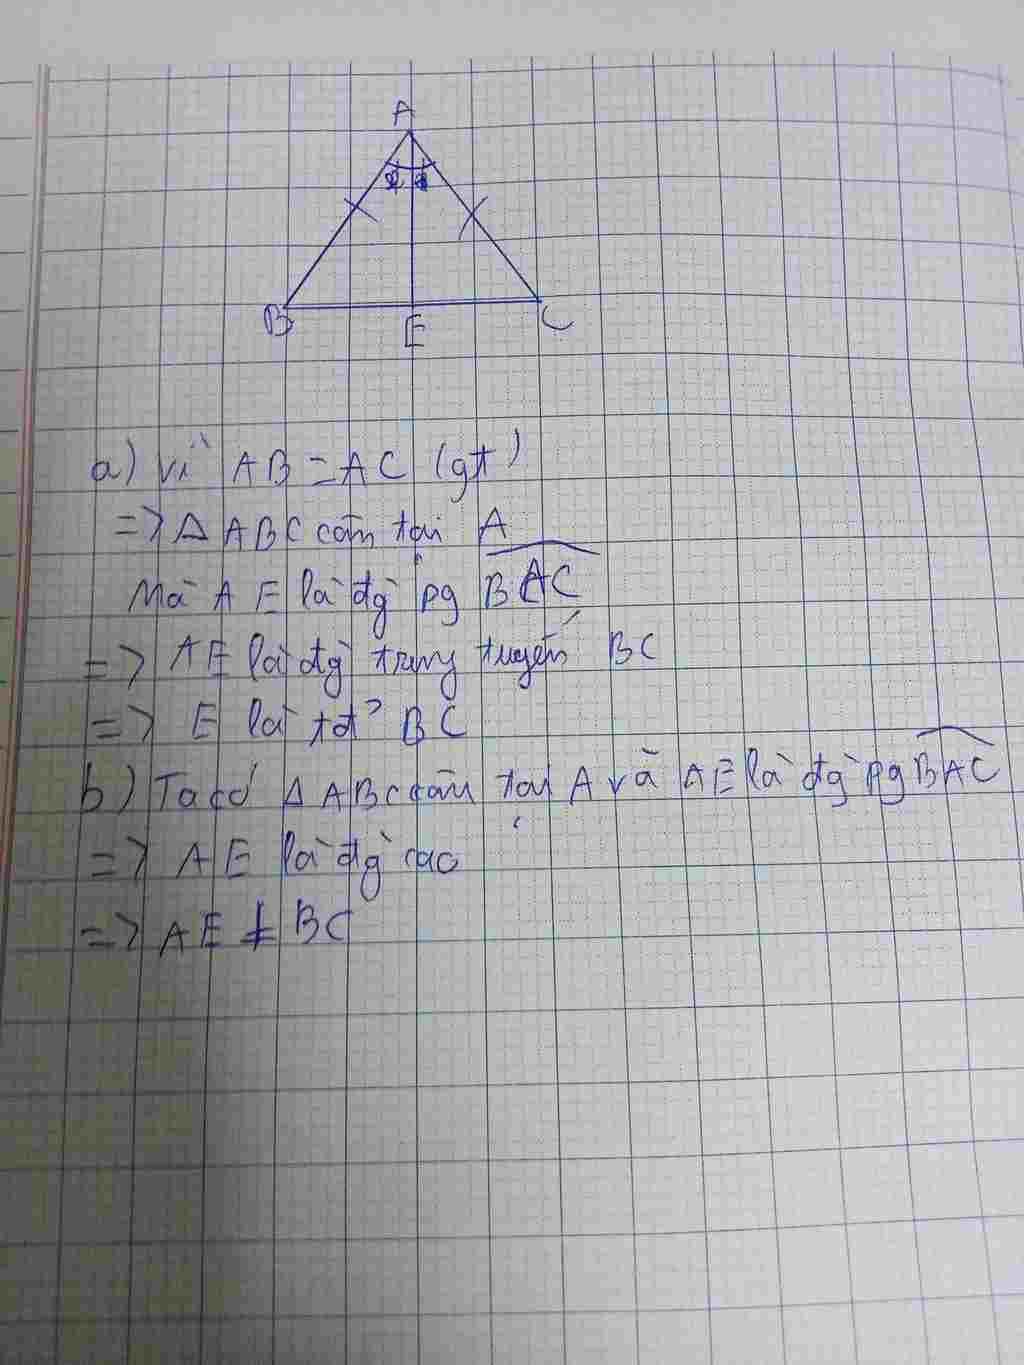 A
B
E
C
a) Vì AB = AC (gt)
=> Δ ABC cân tại A
Mà AE là đg pg BAC
=> AE là đg trung tuyến BC
=> E là tđ BC
b) Ta có Δ ABC cân tại A và AE là đg pg BAC
=> AE là đg cao
=> AE ⊥ BC